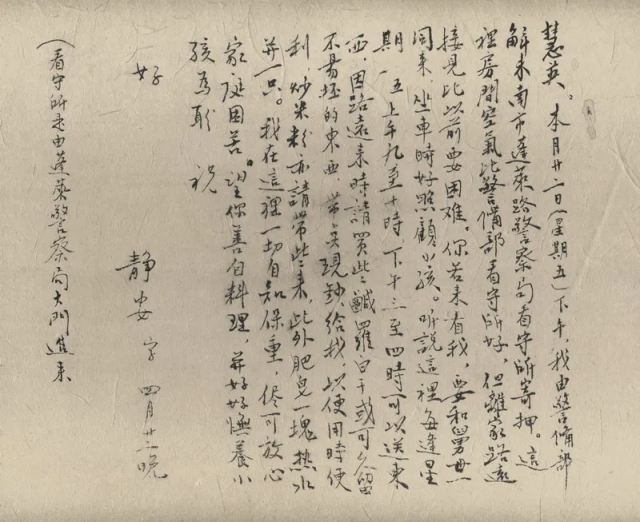 慧英：本月廿二日（星期五）下午，我由警備部
解来南市蓬萊路警察局看守所寄押。這
裡房間空氣比警備部看守所好，但離家路遠
接見比以前要困难。你若来看我，要和舅母一
同来，坐車時好照顧小孩。听說這裡每逢星
期一、五上午九至十時下午三至四時可以送東
西，因路遠来時請買些鹹羅白干或可久留
不易坯的東西，帶些現鈔給我，以便用時便
利，炒米粉亦請帶些来，此外肥皂一塊熱水
瓶一只。我在這裡一切自知保重，侭可放心
家庭困苦。望你善自料理，並好好撫養小
孩為盼　祝
好
靜安字　四月廿三晚
（看守所走由蓬萊警察局大門進来